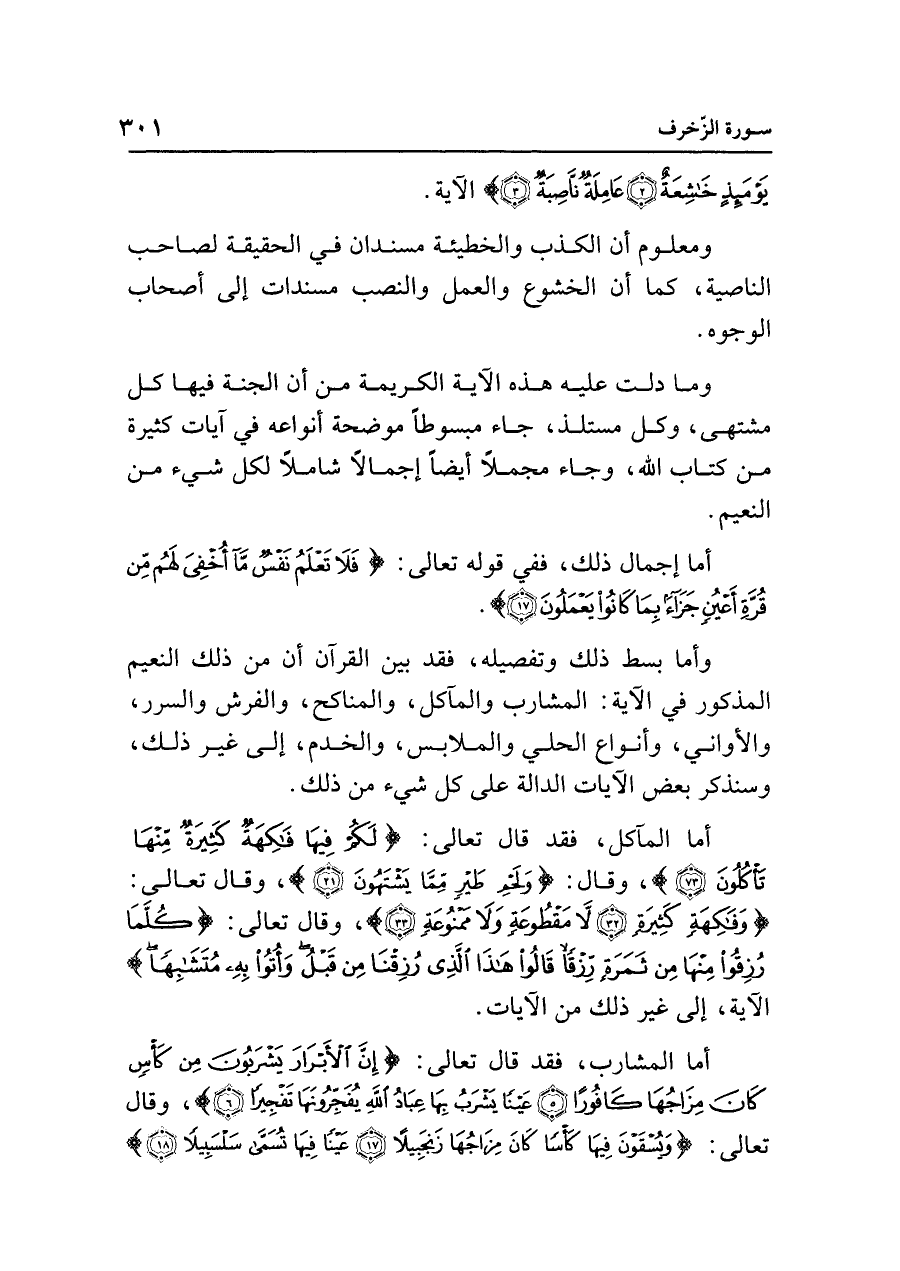 سورة الزّخرف ٣٠١
يَوْمَئِذٍ خَٰشِعَةٌ ﴿٢﴾ عَامِلَةٌ نَّاصِبَةٌ ﴿٣﴾﴾ الآية.
ومعلوم أن الكذب والخطيئة مسندان في الحقيقة لصاحب
الناصية، كما أن الخشوع والعمل والنصب مسندات إلى أصحاب
الوجوه.
وما دلت عليه هذه الآية الكريمة من أن الجنة فيها كل
مشتهى، وكل مستلذ، جاء مبسوطاً موضحة أنواعه في آيات كثيرة
من كتاب الله، وجاء مجملاً أيضاً إجمالاً شاملاً لكل شيء من
النعيم.
أما إجمال ذلك، ففي قوله تعالى: ﴿فَلَا تَعْلَمُ نَفْسٌ مَّآ أُخْفِىَ لَهُم مِّن
قُرَّةِ أَعْيُنٍ جَزَآءًۢ بِمَا كَانُوا۟ يَعْمَلُونَ ﴿١٧﴾﴾.
وأما بسط ذلك وتفصيله، فقد بين القرآن أن من ذلك النعيم
المذكور في الآية: المشارب والمآكل، والمناكح، والفرش والسرر،
والأواني، وأنواع الحلي والملابس، والخدم، إلى غير ذلك،
وسنذكر بعض الآيات الدالة على كل شيء من ذلك.
أما المآكل، فقد قال تعالى: ﴿لَكُمْ فِيهَا فَٰكِهَةٌ كَثِيرَةٌ مِّنْهَا
تَأْكُلُونَ ﴿٧٣﴾﴾، وقال: ﴿وَلَحْمِ طَيْرٍ مِّمَّا يَشْتَهُونَ ﴿٢١﴾﴾، وقال تعالى:
﴿وَفَٰكِهَةٍ كَثِيرَةٍ ﴿٣٢﴾ لَّا مَقْطُوعَةٍ وَلَا مَمْنُوعَةٍ ﴿٣٣﴾﴾، وقال تعالى: ﴿كُلَّمَا
رُزِقُوا۟ مِنْهَا مِن ثَمَرَةٍ رِّزْقًا ۙ قَالُوا۟ هَٰذَا ٱلَّذِى رُزِقْنَا مِن قَبْلُ ۖ وَأُتُوا۟ بِهِۦ مُتَشَٰبِهًا ۖ﴾
الآية، إلى غير ذلك من الآيات.
أما المشارب، فقد قال تعالى: ﴿إِنَّ ٱلْأَبْرَارَ يَشْرَبُونَ مِن كَأْسٍ
كَانَ مِزَاجُهَا كَافُورًا ﴿٥﴾ عَيْنًا يَشْرَبُ بِهَا عِبَادُ ٱللَّهِ يُفَجِّرُونَهَا تَفْجِيرًا ﴿٦﴾﴾، وقال
تعالى: ﴿وَيُسْقَوْنَ فِيهَا كَأْسًا كَانَ مِزَاجُهَا زَنجَبِيلًا ﴿١٧﴾ عَيْنًا فِيهَا تُسَمَّىٰ سَلْسَبِيلًا ﴿١٨﴾﴾